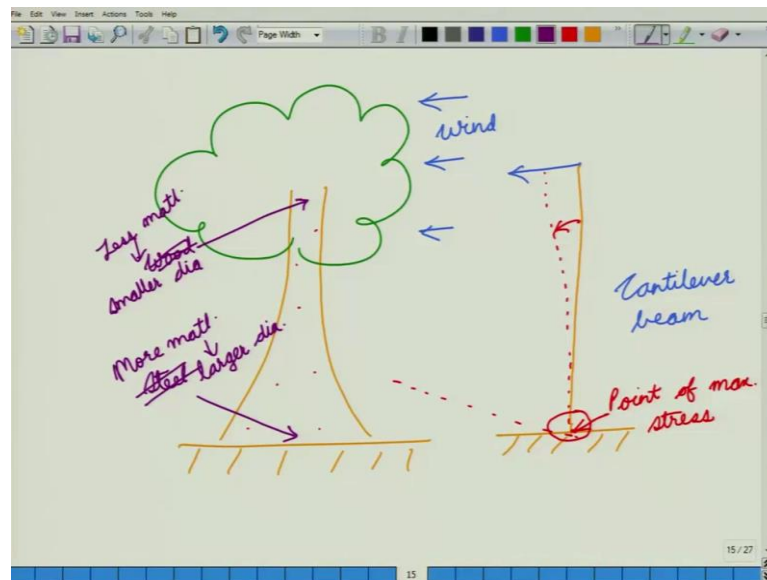 File Edit View Insert Actions Tools Help
Page Width
B I
wind
Less matl.
Wood
smaller dia
More matl.
Steel larger dia.
Cantilever
beam
Point of max.
stress
15/27
15